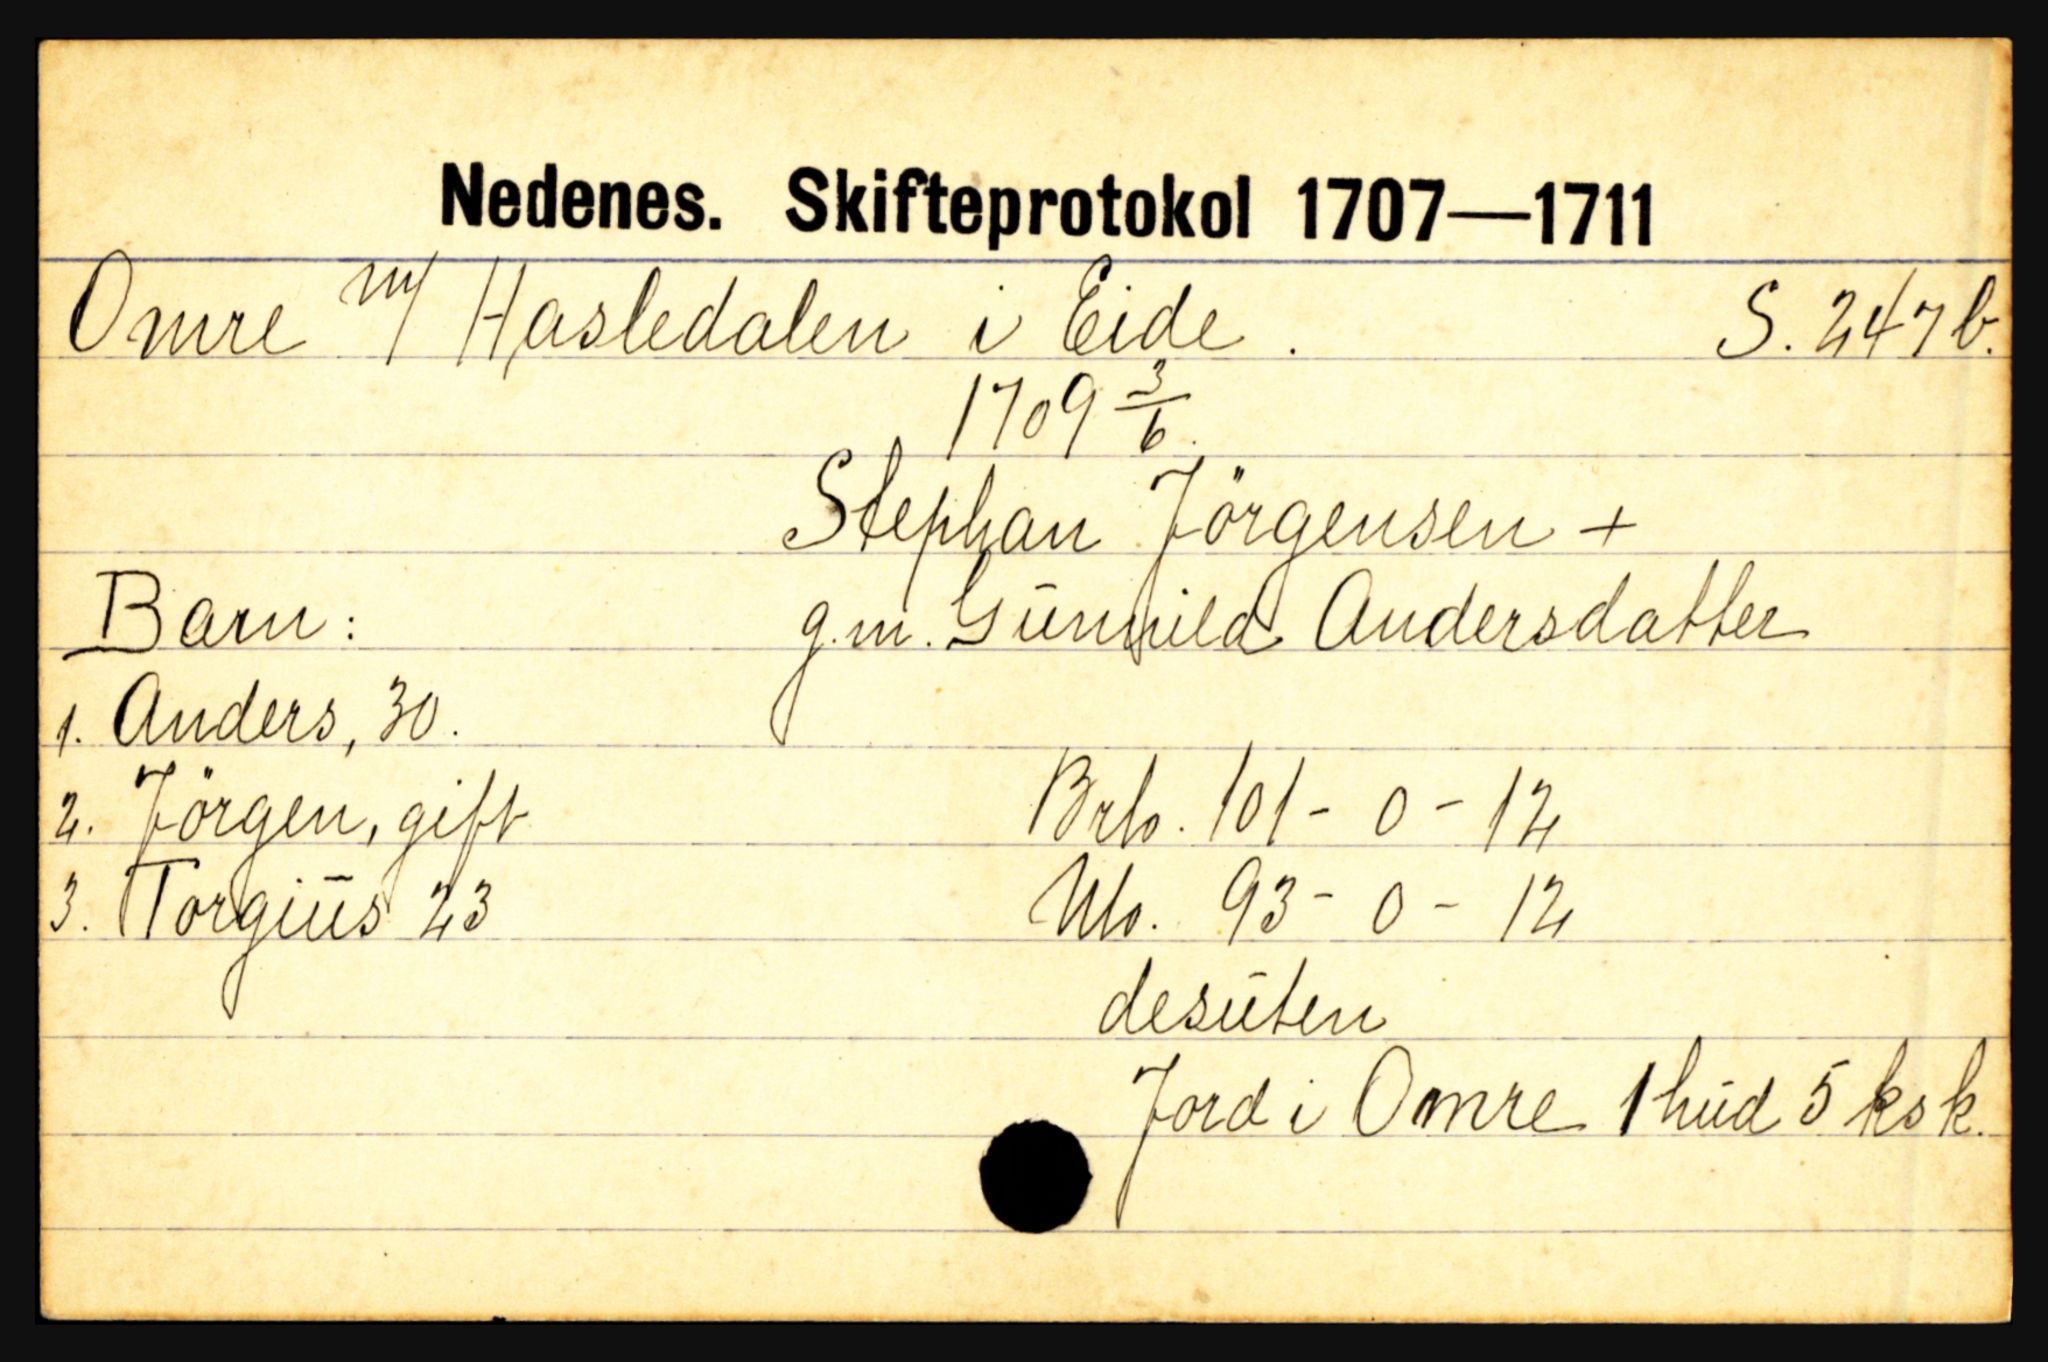 Nedenes. Skifteprotokol 1707—1711
Omre m/ Hasledalen i Eide. S. 247 b.
1709 3/6.
Stephan Jörgensen +
Barn: g.m. Gunnild Andersdatter
1. Anders, 30.
2. Jörgen, gift Brto. 101 - 0 - 12
3. Torgius 23 Nto. 93 - 0 - 12
desuten
Jord i Omre 1 hud 5 ksk.